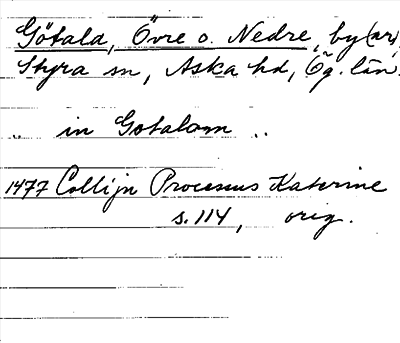 Götala, Övre o. Nedre, by(ar),
Styra sn, Aska hd, Ög. län.
„ in Gotalom ..
1477 Collijn Processus Katerine
s. 114, orig.